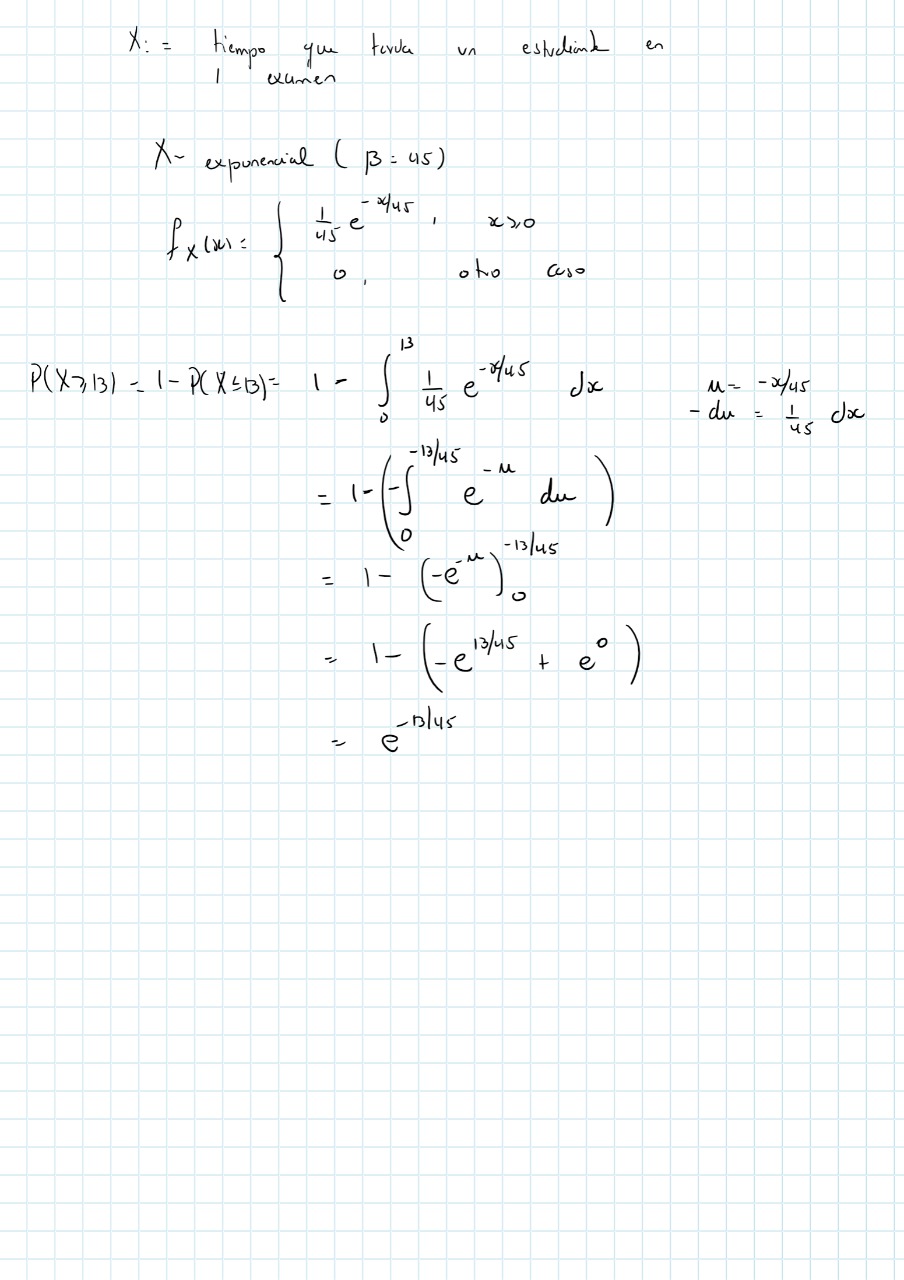 X: = tiempo que tarda un estudiante en
1 examen
X~ exponencial ( β = 45)
f_X(x) = { 1/45 e^{-x/45} , x≥0
0 , otro caso
P(X≥13) = 1 - P(X≤13) = 1 - ∫_0^{13} 1/45 e^{-x/45} dx
u = -x/45
-du = 1/45 dx
= 1 - ( -∫_0^{-13/45} e^{-u} du )
= 1 - (-e^{-u})_0^{-13/45}
= 1 - ( -e^{13/45} + e^0 )
= e^{-13/45}